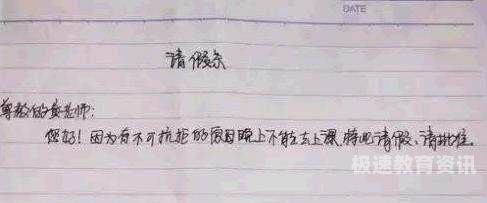 DATE
请假条
尊敬的黄老师:
您好!因为有不可抗拒的原因晚上不能去上课,特此请假、请批准
极速教育资讯